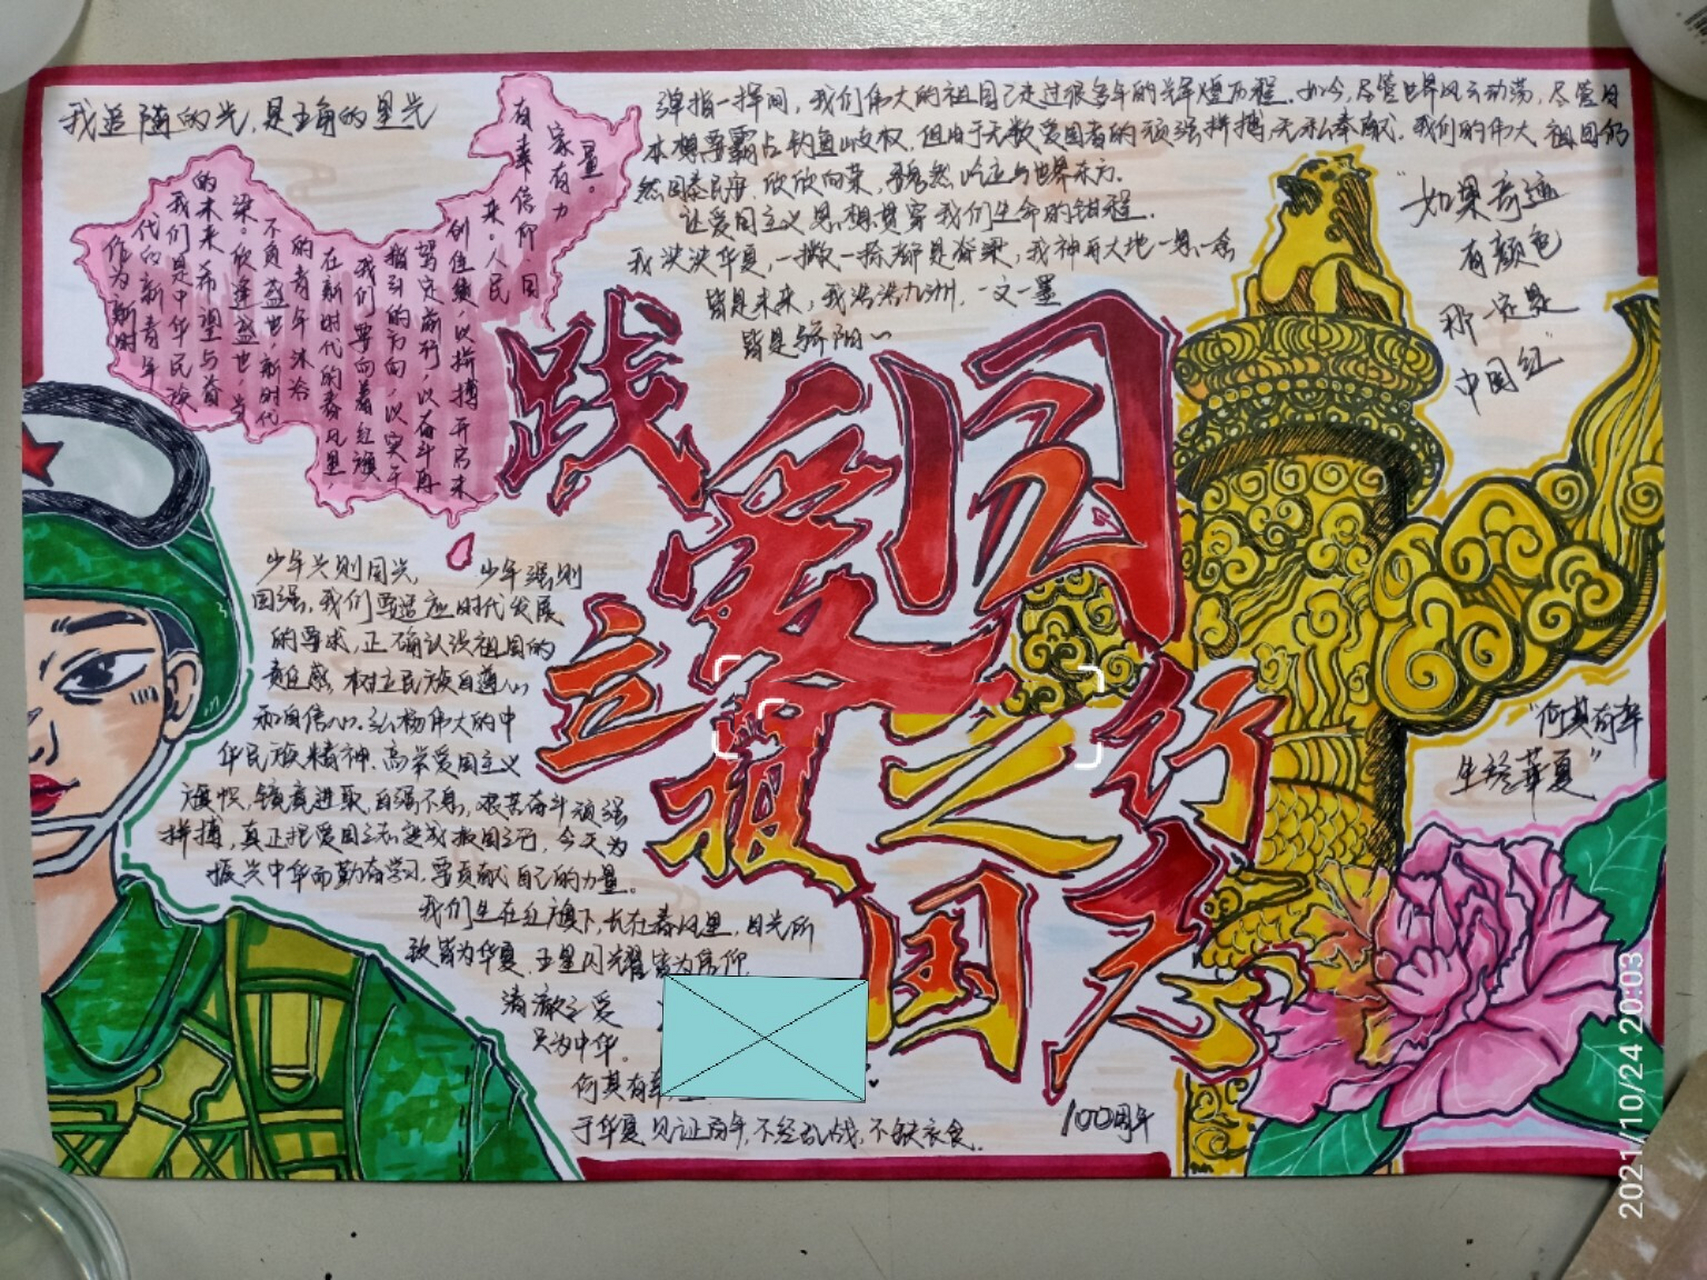 我追随的光,是五角的星光
有幸信仰 国
家有力
量。
作为新时
代的新青年
我们是中华民族
的未来希望与脊
梁。欣逢盛世,当
不负盛世,新时代
的青年沐浴
在新时代的春风里
我们要向着红旗
指引的方向,以实干
驾定前行,以奋斗再
创佳绩,以拼搏开启未
来。人民
弹指一挥间,我们伟大的祖国已走过很多年的光辉煌历程.如今,尽管世界风云动荡,尽管日
本想要霸占钓鱼岛主权,但由于无数爱国者的顽强拼搏,无私奉献,我们的伟大祖国仍
然国泰民安,欣欣向荣,屹立与世界东方.
让爱国主义思想贯穿我们生命的钳程.
我泱泱华夏,一撇一捺都是脊梁,我神再大地一思一念
皆是未来,我浩浩九洲,一文一墨
皆是骄阳
"如果奇迹
有颜色
那一定是
中国红"
践爱国之行
立祖国志
少年兴则国兴 少年强则
国强,我们要适应时代发展
的要求,正确认识祖国的
责任感,树立民族自尊心
和自信心.弘杨伟大的中
华民族精神.高举爱国主义
旗帜,锐意进取,自强不息,艰苦奋斗顽强
拼搏,真正把爱国之志变成报国之行,今天为
振兴中华而勤奋学习,要贡献自己的力量。
我们生在红旗下,长在春风里,目光所
致皆为华夏,五星闪耀皆为信仰.
清澈之爱
只为中华。
何其有幸
于华夏见证百年,不经乱战,不缺衣食.
"何其有幸
生经华夏"
100周年
2021/10/24 20:03